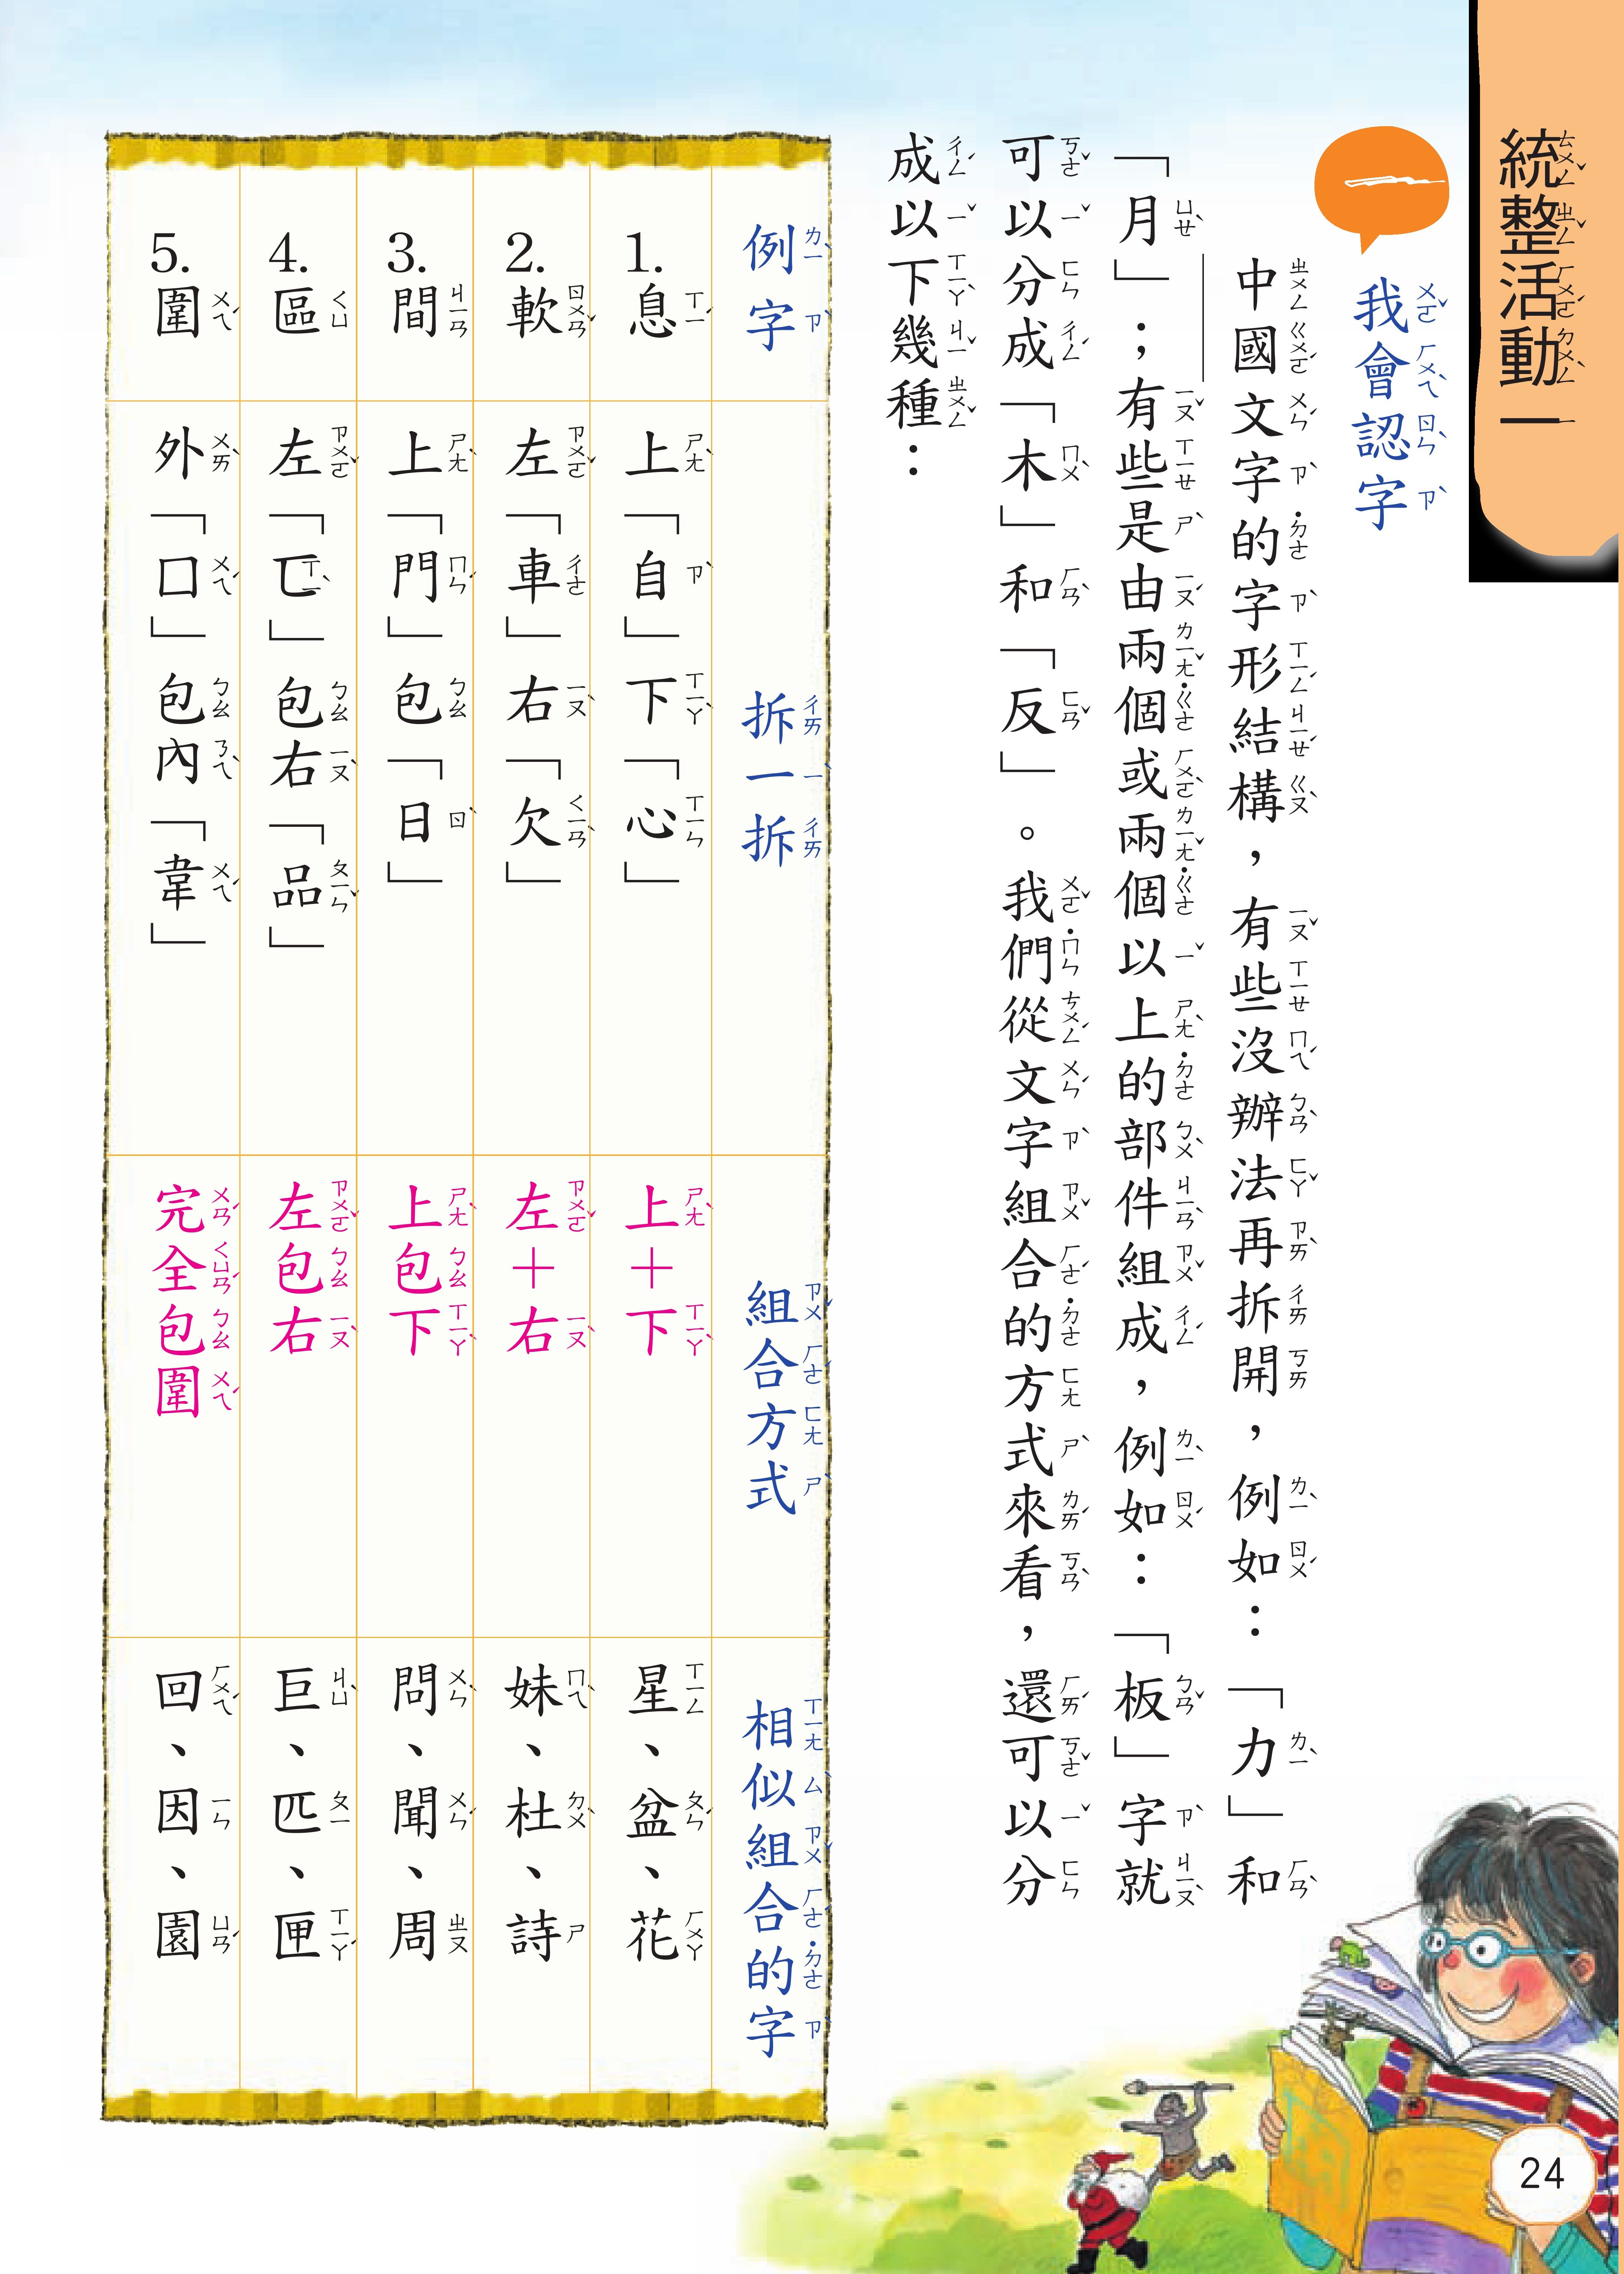 統整活動一
一
我會認字
中國文字的字形結構，有些沒辦法再拆開，例如：「力」和
「月」；有些是由兩個或兩個以上的部件組成，例如：「板」字就
可以分成「木」和「反」。我們從文字組合的方式來看，還可以分
成以下幾種：
例字 拆一拆 組合方式 相似組合的字
1.息 上「自」下「心」 上＋下 星、盆、花
2.軟 左「車」右「欠」 左＋右 妹、杜、詩
3.間 上「門」包「日」 上包下 問、聞、周
4.區 左「匸」包右「品」 左包右 巨、匹、匣
5.圍 外「囗」包內「韋」 完全包圍 回、因、園
24